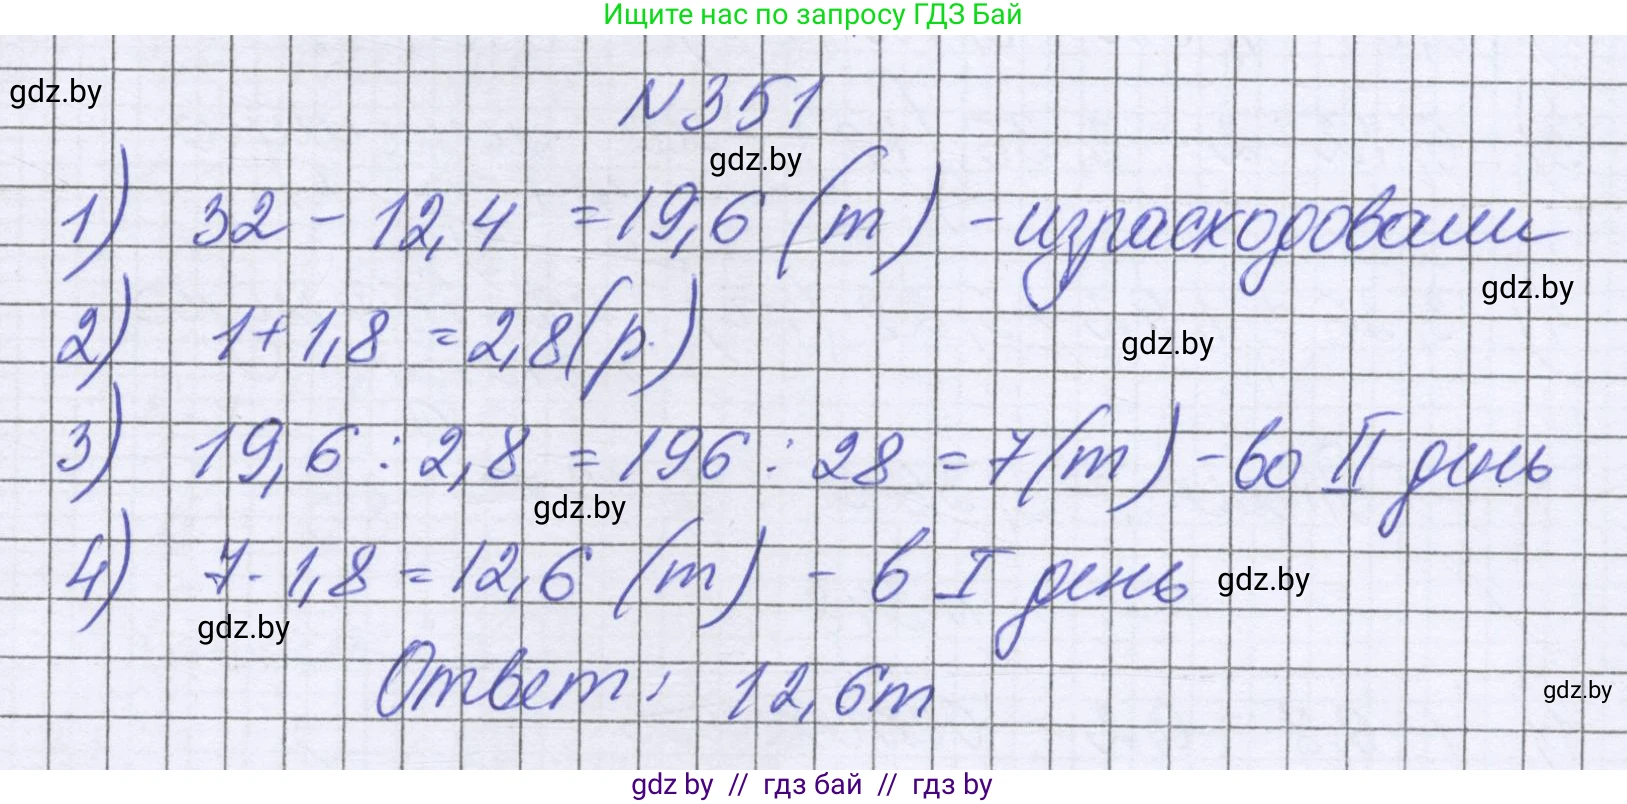 Ищите нас по запросу ГДЗ Бай
gdz.by
N351
gdz.by
1) 32 - 12,4 = 19,6 (т) - израсходовали
gdz.by
2) 1+1,8 = 2,8 (р.)
gdz.by
3) 19,6 : 2,8 = 196 : 28 = 7 (т) - во II день
gdz.by
4) 7 · 1,8 = 12,6 (т) - в I день
gdz.by
gdz.by
Ответ: 12,6т
gdz.by
gdz by // гдз бай // гдз by